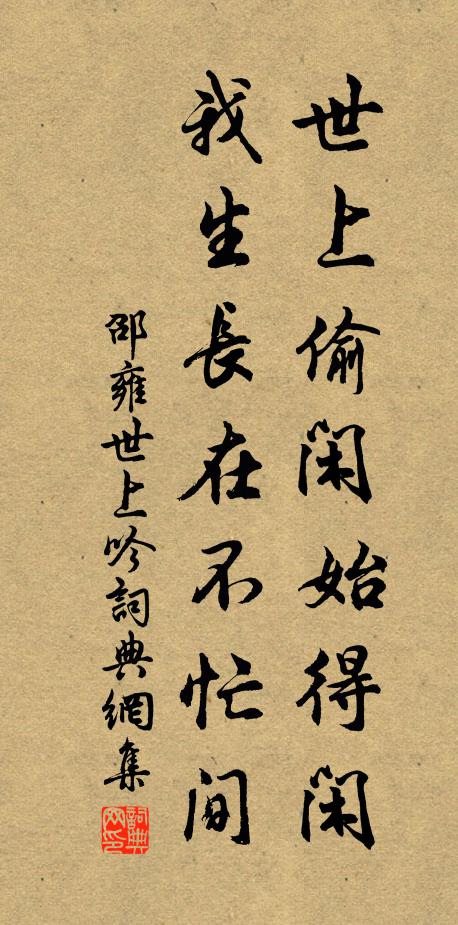 世上偷闲始得闲
我生長在不忙间
邵雍世上吟詞典網集
詞典網印